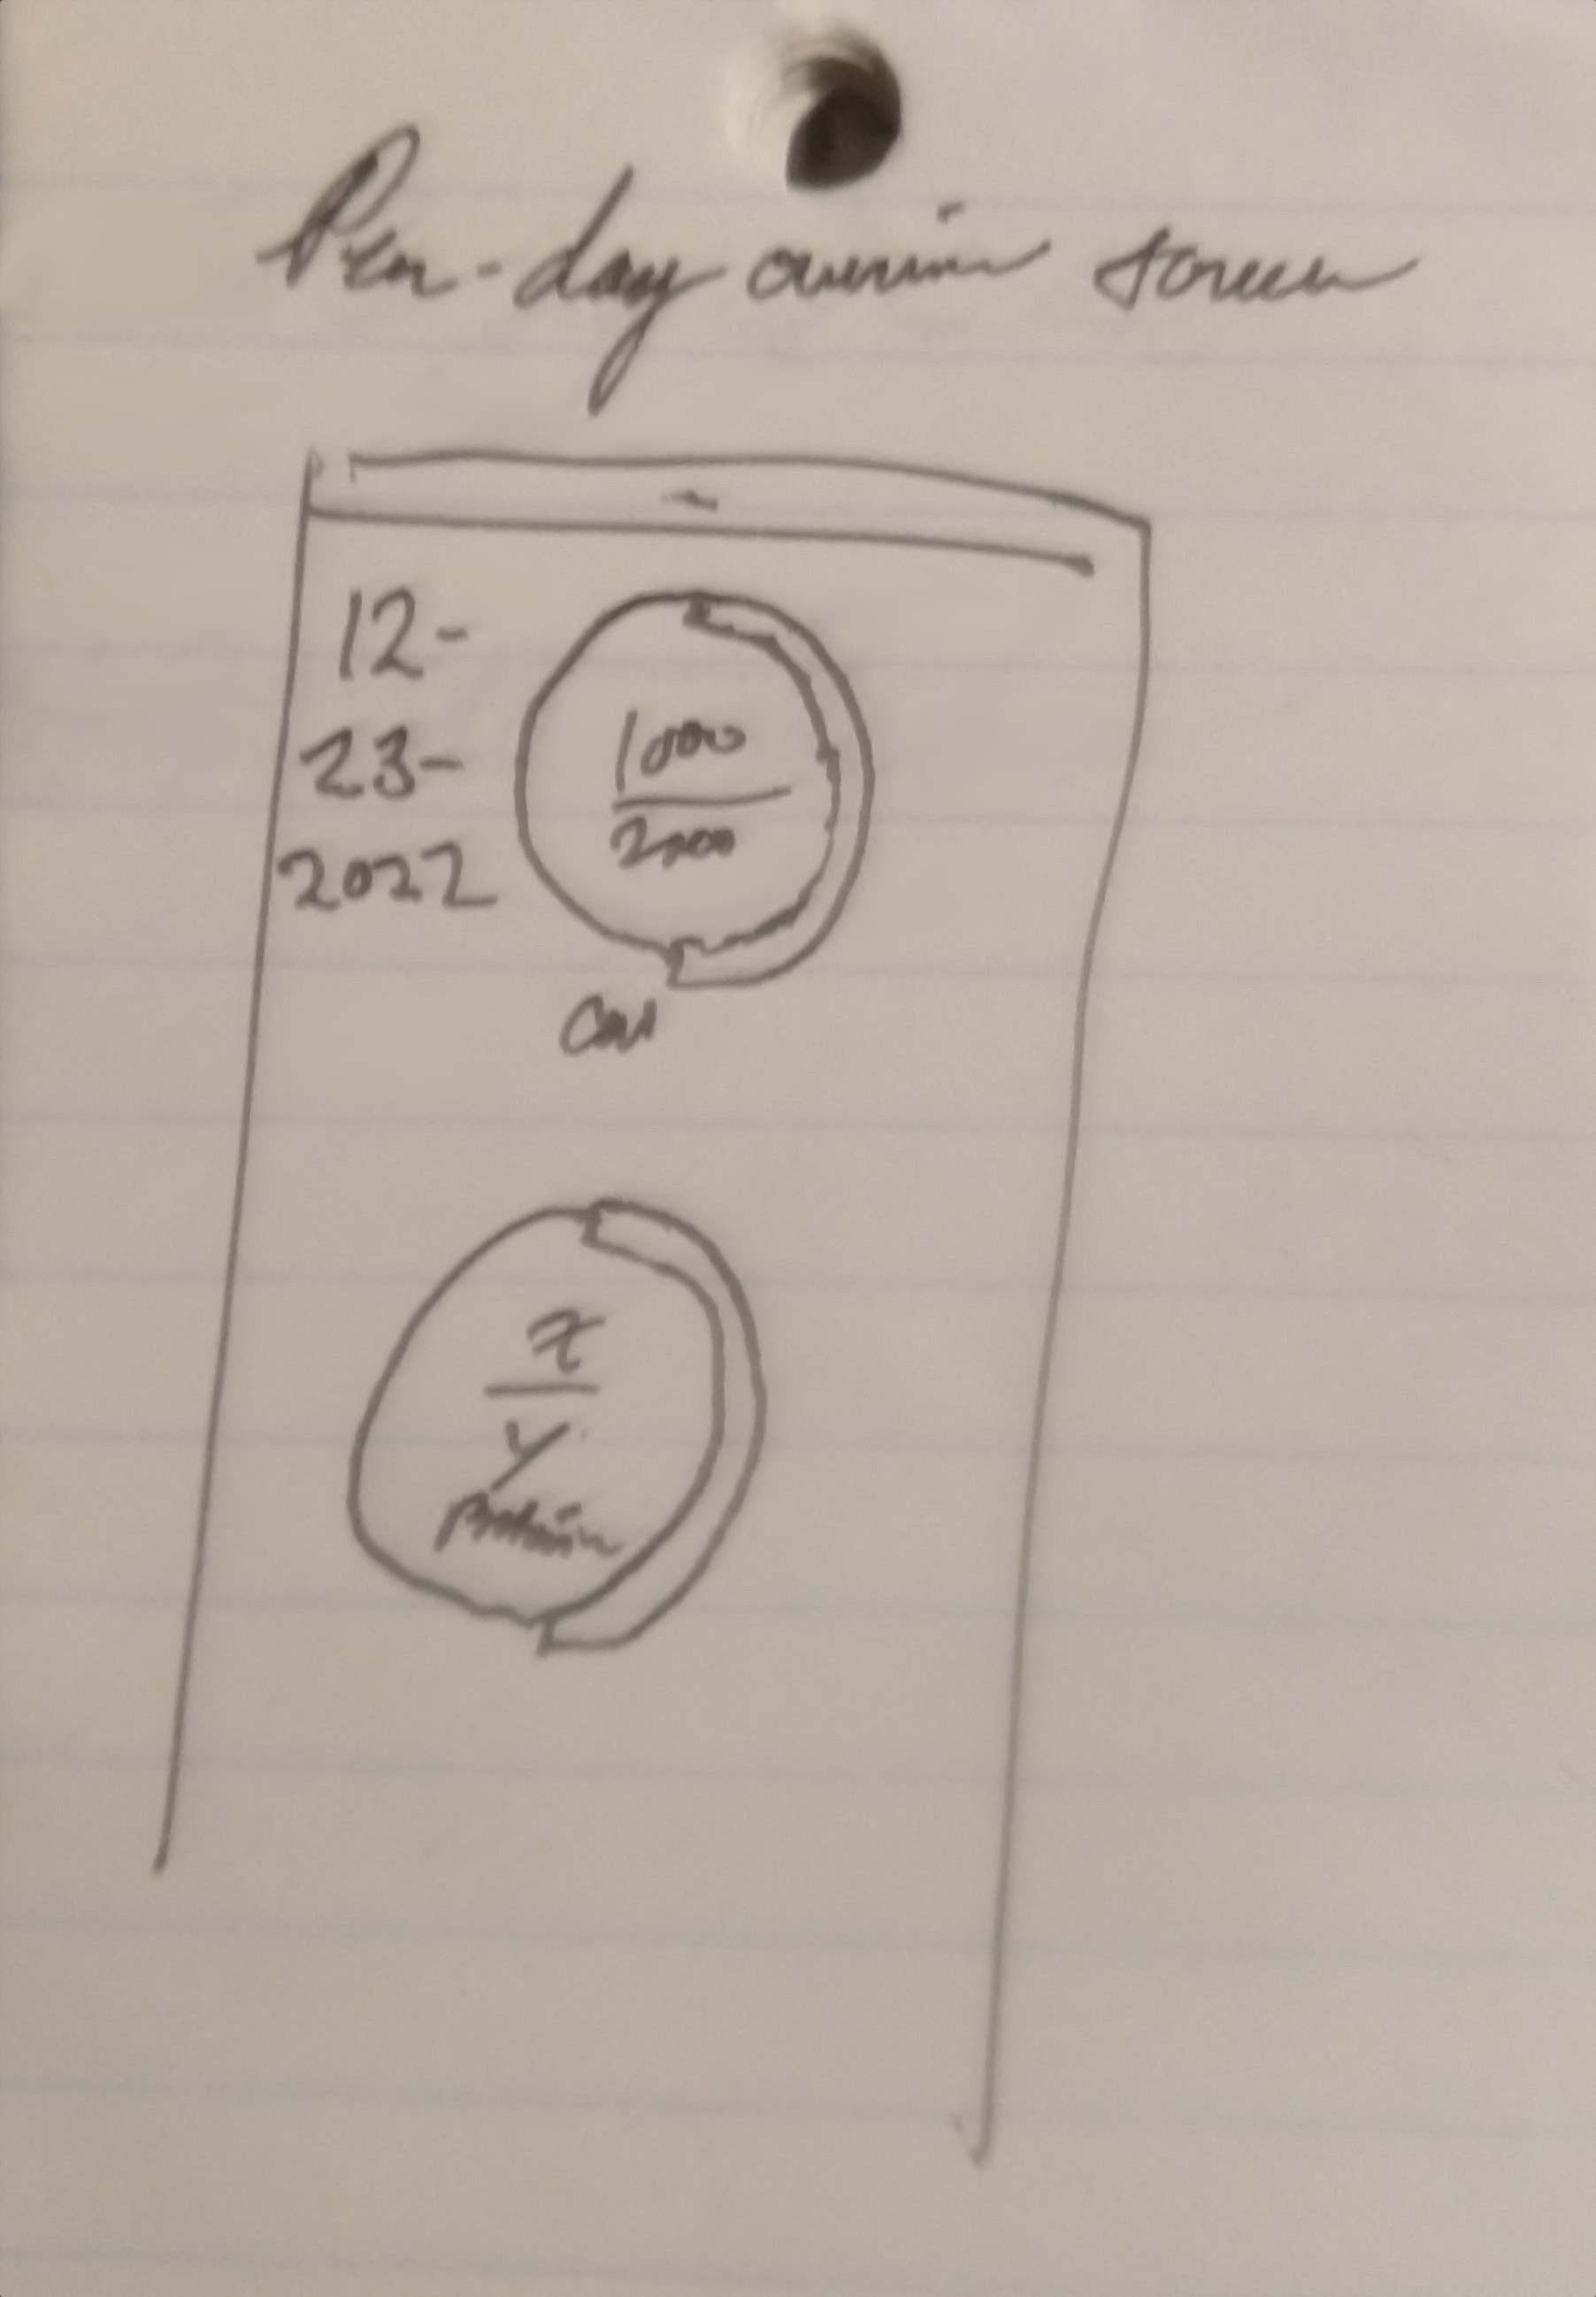 Per-day overview screen
12-
23-
2022
1000
2000
Cal
x
y
protein